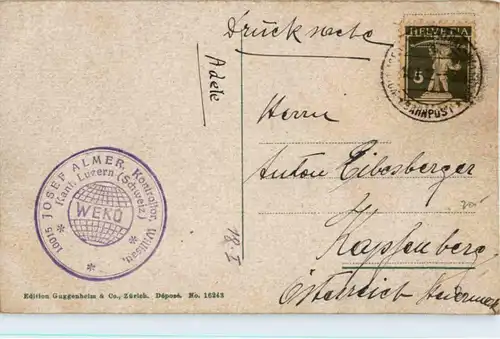 Drucksache
HELVETIA
5
BAHNPOST
Adele
Herrn
Anton Eibesberger
Kapfenberg
Österreich Steiermark
18/I
10015 JOSEF ALMER, Kontrollor, Willisau,
Kant. Luzern (Schweiz)
WEKO
Edition Guggenheim & Co., Zürich. Déposé. No. 16243